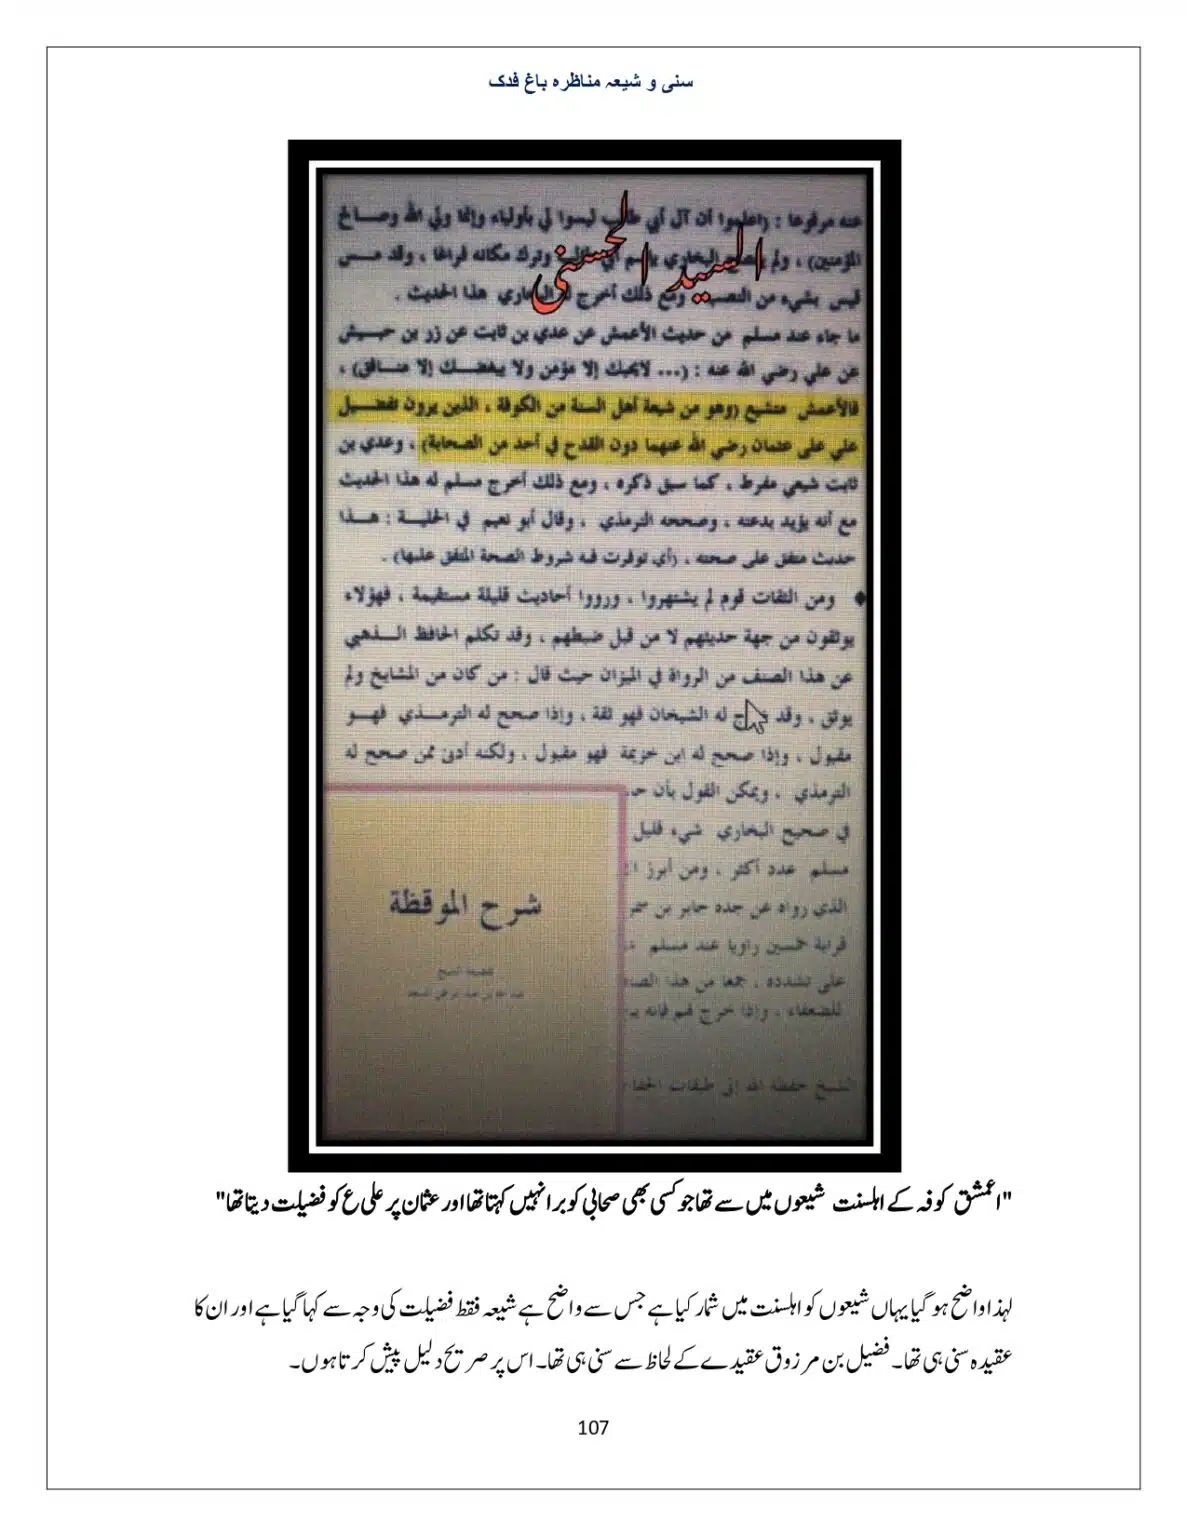 سنی و شیعہ مناظرہ باغ فدک
عنه مرفوعا : (اعلموا أن آل أبي طالب ليسوا لي بأولياء وإنما ولي الله وصالح
المؤمنين) ، ولم البخاري وترك مكانه فراغا ، وقد مس
قيس بشيء من النصب ومع ذلك أخرج له البخاري هذا الحديث .
السيد الحسني
ما جاء عند مسلم من حديث الأعمش عن عدي بن ثابت عن زر بن حبيش
عن علي رضي الله عنه : (... لايحبك إلا مؤمن ولا يبغضك إلا منافق) ،
فالأعمش متشيع (وهو من شيعة أهل السنة من الكوفة ، الذين يرون تفضيل
علي على عثمان رضي الله عنهما دون القدح في أحد من الصحابة) ، وعدي بن
ثابت شيعي مفرط ، كما سبق ذكره ، ومع ذلك أخرج مسلم له هذا الحديث
مع أنه يؤيد بدعته ، وصححه الترمذي ، وقال أبو نعيم في الحلية : هذا
حديث متفق على صحته ، (أي توفرت فيه شروط الصحة المتفق عليها) .
♦ ومن الثقات قوم لم يشتهروا ، ورووا أحاديث قليلة مستقيمة ، فهؤلاء
يوثقون من جهة حديثهم لا من قبل ضبطهم ، وقد تكلم الحافظ الذهبي
عن هذا الصنف من الرواة في الميزان حيث قال : من كان من المشايخ ولم
يوثق ، وقد له الشيخان فهو ثقة ، وإذا صحح له الترمذي فهو
مقبول ، وإذا صحح له ابن خزيمة فهو مقبول ، ولكنه أدنى ممن صحح له
الترمذي ، ويمكن القول بأن
في صحيح البخاري شيء قليل
مسلم عدد أكثر ، ومن أبرز
الذي رواه عن جده جابر بن
قرابة خمسين راويا عند مسلم
على تشدده ، جمعا من هذا
للضعفاء ، وإذا خرج لهم فإنه
الشيخ حفظه الله إلى طبقات
شرح الموقظة
"اعمشق کوفہ کے اہلسنت شیعوں میں سے تھا جو کسی بھی صحابی کو برا نہیں کہتا تھا اور عثمان پر علی ع کو فضیلت دیتا تھا"
لہذا واضح ہو گیا یہاں شیعوں کو اہلسنت میں شمار کیا ہے جس سے واضح ہے شیعہ فقط فضیلت کی وجہ سے کہا گیا ہے اور ان کا
عقیدہ سنی ہی تھا۔ فضیل بن مرزوق عقیدے کے لحاظ سے سنی ہی تھا۔ اس پر صریح دلیل پیش کرتا ہوں۔
107